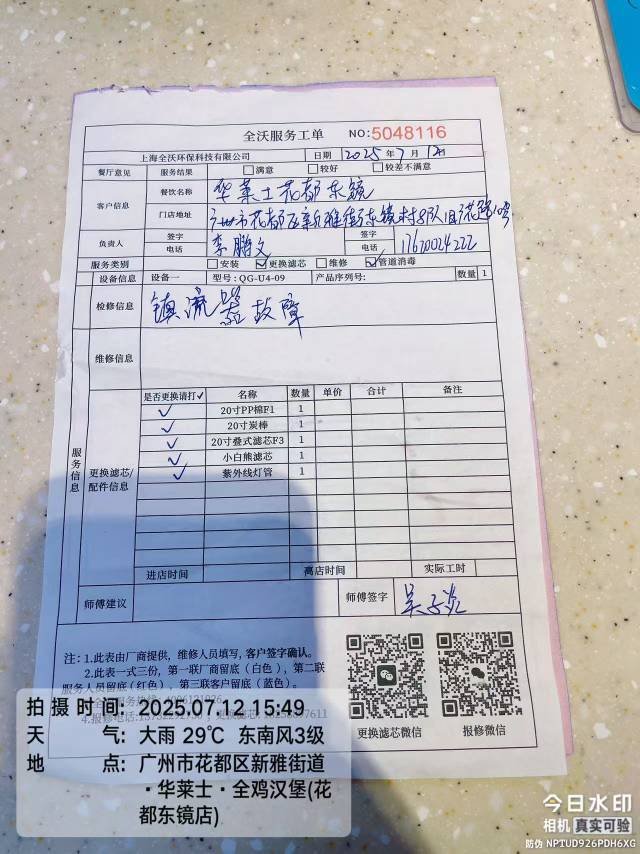 全沃服务工单 NO:5048116
上海全沃环保科技有限公司 日期 2025年7月12日
餐厅意见 服务结果 满意 较好 较差不满意
客户信息 餐饮名称 华莱士花都东镜
门店地址 广州市花都区新雅街东镜村8队旧诗花路10号
负责人 签字 李鹏文 签字
电话 电话 17620024222
服务类别 安装 ✓更换滤芯 维修 ✓管道消毒
设备信息 设备一 型号:QG-U4-09 产品序列号: 数量 1
检修信息 镇流器故障
维修信息
服务信息
更换滤芯/配件信息
是否更换请打✓ 名称 数量 单价 合计 备注
✓ 20寸PP棉F1 1
✓ 20寸炭棒 1
✓ 20寸叠式滤芯F3 1
✓ 小白熊滤芯 1
✓ 紫外线灯管 1
进店时间 离店时间 实际工时
师傅建议 师傅签字 吴子炎
注:1.此表由厂商提供,维修人员填写,客户签字确认。
2.此表一式三份,第一联厂商留底(白色),第二联
服务人员留底(红色),第三联客户留底(蓝色)。
4.报修电话:
更换滤芯微信 报修微信
拍摄时间:2025.07.12 15:49
天气:大雨 29℃ 东南风3级
地点:广州市花都区新雅街道
·华莱士·全鸡汉堡(花
都东镜店)
今日水印
相机 真实可验
防伪 NPTUD926PDH6XG